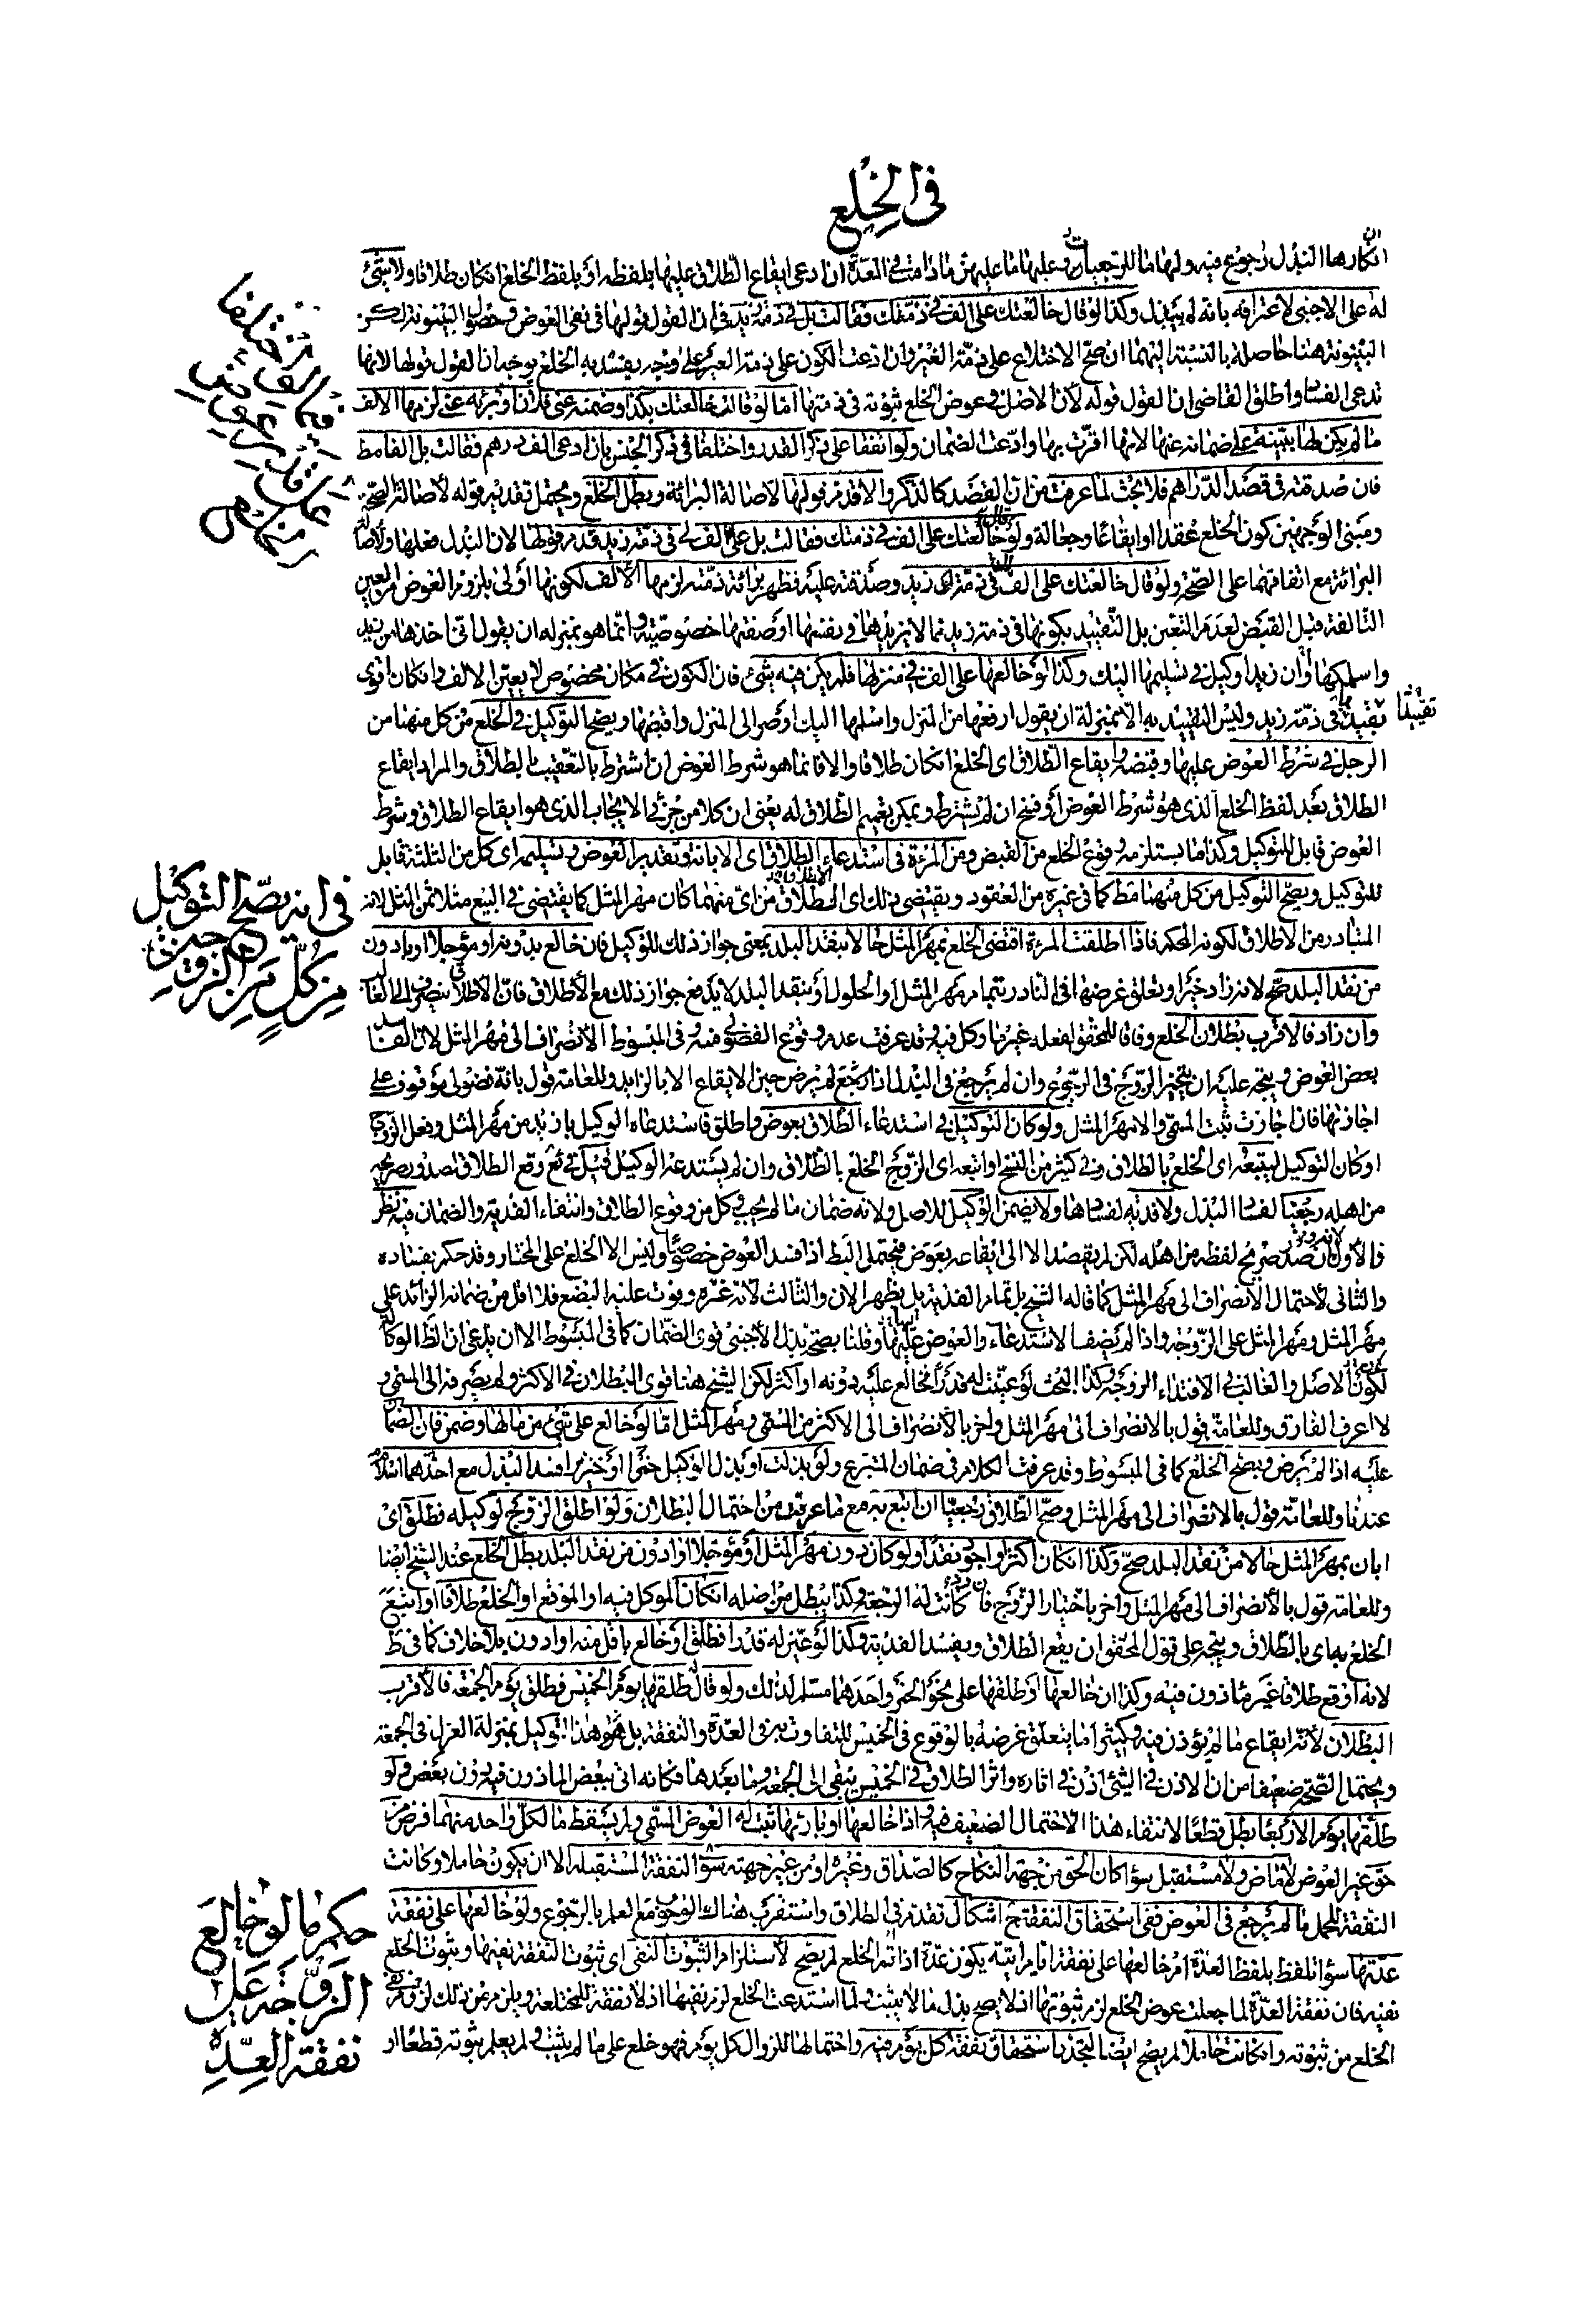 فى الخلع
انكارها البذل رجوع فيه ولها ما للرجعيات وعليها ما عليهن ما دامت فى العدة ان ادعى ايقاع الطلاق عليها بلفظه او بلفظ الخلع ان كان طلاقا ولا شئ
له على الاجنبى لاعترافه بانه لم يبذل وكذا لو قال خالعتك على الف فى ذمتك فقالت بل فى ذمة زيد فى ان القول قولها فى نفى العوض وحصول البينونة لكن
البينونة هنا حاصلة بالنسبة اليهما ان صح الاختلاع على ذمة الغير وان ادعت الكون على ذمة الغير على وجه يفسد به الخلع توجه ان القول قولها لانها
تدعى الفساد واطلق القاضى ان القول قوله لان الاصل فى عوض الخلع ثبوته فى ذمتها اما لو قالت خالعتك بكذا وضمنه عنى فلان او يزنه عنى لزمها الالف
ما لم يكن لها بينة على ضمانه عنها لانها اقرت بها وادعت الضمان ولو اتفقا على ذكر القدر واختلفا فى ذكر الجنس بان ادعى الف درهم فقالت بل الف مط
فان صدقته فى قصد الدراهم فلا بحث لما عرفت من ان القصد كالذكر والا قدم قولها لاصالة البرائة وبطل الخلع ويحتمل تقديم قوله لاصالة الصحة
ومبنى الوجهين كون الخلع عقدا او ايقاعا وجعالة ولو قال خالعتك على الف فى ذمتك فقالت بل على الف لى فى ذمة زيد قدم قولها لان البذل فعلها ولاصالة
البرائة مع اتفاقهما على الصحة ولو قال خالعتك على الف فى ذمة زيد وصدقته عليه فظهر برائة ذمته لزمها الالف لكونها اولى بلزوم العوض من العين
التالفة قبل القبض لعدم التعين بل التقييد بكونها فى ذمة زيد مما لا يزيدها فى نفسها او صفتها خصوصية وانما هو بمنزله ان يقول اتى اخذها من زيد
واسلمكها او ان زيدا وكيل فى تسليمها اليك وكذا لو خالعها على الف فى منزلها فلم يكن فيه شئ فان الكون فى مكان مخصوص لا يعين الالف وان كان اقوى
تقييدا فى ذمة زيد وليس التقييد به الا بمنزلة ان يقول ارفعها من المنزل واسلمها اليك او صر الى المنزل واقبضها ويصح التوكيل فى الخلع من كل منهما من
الرجل فى شرط العوض عليها وقبضه وايقاع الطلاق اى الخلع ان كان طلاقا والا فانما هو شرط العوض ان اشترط بالتعقيب بالطلاق والمراد ايقاع
الطلاق بعد لفظ الخلع الذى هو شرط العوض او فسخ ان لم يشترط ويمكن تعميم الطلاق له يعنى ان كلا من جزئى الايجاب الذى هو ايقاع الطلاق وشرط
العوض قابل للتوكيل وكذا ما يستلزمه وقوع الخلع من القبض ومن المرءة فى استدعاء الطلاق اى الابانة وتقدير العوض وتسليمه اى كل من الثلثة قابل
للتوكيل ويصح التوكيل من كل منهما مط كما فى غيره من العقود ويقتضى ذلك اى الاطلاق من اى منهما كان مهر المثل كما يقتضى فى البيع مثلا ثمن المثل لانه
المتبادر من الاطلاق لكونه الحكم فاذا اطلقت المرءة اقتضى الخلع بمهر المثل حالا بنقد البلد بمعنى جواز ذلك للوكيل فان خالع بدونه او مؤجلا او بادون
من نقد البلد صح لانه زاد خيرا وتعلق غرضها فى النادر بتمام مهر المثل او الحلول او بنقد البلد لا يدفع جواز ذلك مع الاطلاق فان الاطلاق ينصرف الى الغالب
وان زاد فالاقرب بطلان الخلع وفاقا للمحقق لفعله غير ما وكل فيه وقد عرفت عدم وقوع الفضولى منه وفى المبسوط الانصراف الى مهر المثل لان الفاسد
بعض العوض ويتجه عليه ان يتخير الزوج فى الرجوع وان لم يرجع فى البذل اذا لم يرض حين الايقاع الا بالزايد وللعامة قول بانه فضولى موقوف على
اجازتها فان اجازت ثبت المسمى والا مهر المثل ولو كان التوكيل فى استدعاء الطلاق بعوض واطلق فاستدعاه الوكيل بازيد من مهر المثل وفعل الزوج
او كان التوكيل ليتبعه اى الخلع بالطلاق وفى كثير من النسخ او اتبعه اى الزوج الخلع بالطلاق وان لم يستدعه الوكيل قبل فى ئع وقع الطلاق لصدور صريحه
من اهله رجعيا لفساد البذل ولا فدية لفسادها ولا يضمن الوكيل للاصل ولانه ضمان ما لم يجب وفى كل من وقوع الطلاق وانتفاء الفدية والضمان فيه نظر
فالاول لانه وان صدر صريح لفظه من اهله لكن لم يقصد الا الى ايقاعه بعوض فيحتمل البط اذا فسد العوض خصوصا وليس الا الخلع على المختار وقد حكم بفساده
والثانى لاحتمال الانصراف الى مهر المثل كما قاله الشيخ بل تمام الفدية بل يظهر الان والثالث لانه غره وفوت عليه البضع فلا اقل من ضمانه الزائد على
مهر المثل ومهر المثل على الزوجة واذا لم يضفا الاستدعاء والعوض عليها وقلنا بصحة بذل الاجنبى قوى الضمان كما فى المبسوط الا ان يدعى ان الظ الوكالة
لكونه الاصل والغالب فى الافتداء الزوجة وكذا البحث لو عينت له قدرا فخالع عليه بدونه او اكثر لكن الشيخ هنا قوى البطلان فى الاكثر ولم يصرفه الى المسمى و
لا اعرف الفارق وللعامة قول بالانصراف الى مهر المثل واخر بالانصراف الى الاكثر من المسمى ومهر المثل اما لو خالع على شئ من مالها وضمن فان الضمان
عليه اذا لم يرض ويصح الخلع كما فى المبسوط وقد عرفت الكلام فى ضمان المتبرع ولو بذلت او بذل الوكيل خمرا او خنزيرا فسد البذل مع احدهما اسلام
عندنا وللعامة قول بالانصراف الى مهر المثل وصح الطلاق رجعيا ان اتبع به مع ما عرفت من احتمال البطلان ولو اطلق الزوج لوكيله فطلق اى
ابان بمهر المثل حالا من نقد البلد صح وكذا ان كان اكثر او اجود نقدا ولو كان دون مهر المثل او مؤجلا او ادون من نقد البلد بطل الخلع عند الشيخ ايضا
وللعامة قول بالانصراف الى مهر المثل واخر باختيار الزوج فان رده كانت له الرجعة وكذا يبطل من اصله ان كان الموكل فيه او الموقع او الخلع طلاقا او اتبع
الخلع به اى بالطلاق ويتجه على قول المحقق ان يقع الطلاق ويفسد الفدية وكذا لو عين له قدرا فطلق او خالع باقل منه او ادون بلا خلاف كما فى ط
لانه اوقع طلاقا غير ماذون فيه وكذا ان خالعها او طلقها على نحو الخمر واحدهما مسلم لذلك ولو قال طلقها يوم الخميس فطلق يوم الجمعة فالاقرب
البطلان لانه ايقاع ما لم يؤذن فيه وكثيرا ما يتعلق غرضه بالوقوع فى الخميس للتفاوت بين فى العدة والنفقة بل هو هذا التوكيل بمنزلة العزل فى الجمعة
ويحتمل الصحة ضعيفا من ان الاذن فى الشئ اذن فى اثاره واثر الطلاق فى الخميس يبقى الى الجمعة وما بعدها فكانه اتى ببعض الماذون فيه دون بعض ولو
طلقها يوم الاربعا بطل قطعا لانتفاء هذا الاحتمال الضعيف فيه واذا خالعها او بارئها ثبت له العوض المسمى ولم يسقط ما لكل واحد منهما فرض من
حق غير العوض لا ماض ولا مستقبل سواء كان الحق من جهة النكاح كالصداق وغيره او من غير جهته سوى النفقة المستقبلة الا ان يكون حاملا وكانت
النفقة للحمل ما لم يرجع فى العوض ففى استحقاق النفقة ح اشكال تقدم فى الطلاق واستقرب هناك الوجوب مع العلم بالرجوع ولو خالعها على نفقة
عدتها سواء تلفظ بلفظ العدة ام خالعها على نفقة ايام ابنية يكون عدة اذا تم الخلع لم يصح لاستلزام الثبوت النفى اى ثبوت النفقة نفيها وثبوت الخلع
نفيه فان نفقة العدة لما جعلت عوض الخلع لزم ثبوتها اذ لا يصح بذل ما لا يثبت ولما استدعت الخلع لزم نفيها اذ لا نفقة للمختلعة ويلزم من ذلك لزوم نفى
الخلع من ثبوته وان كانت حاملا لم يصح ايضا لتجدد استحقاق نفقة كل يوم فيه واحتمالها للزوال كل يوم فهو خلع على ما لم يثبت ولم يعلم ثبوته قطعا او
تقييدا
فى انه يصح التوكيل
من كل من الزوجين
حكم ما لو خالع
الزوجة على
نفقة العدة